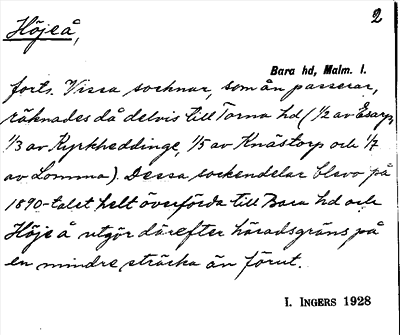 2
Höjeå,
Bara hd, Malm. l.
forts. Vissa socknar, som ån passerar,
räknades då delvis till Torna hd (1/2 av Esarp,
1/3 av Kyrkheddinge, 1/5 av Knästorp och 1/7
av Lomma). Dessa sockendelar blevo på
1890-talet helt överförda till Bara hd och
Höje å utgör därefter häradsgräns på
en mindre sträcka än förut.
I. INGERS 1928